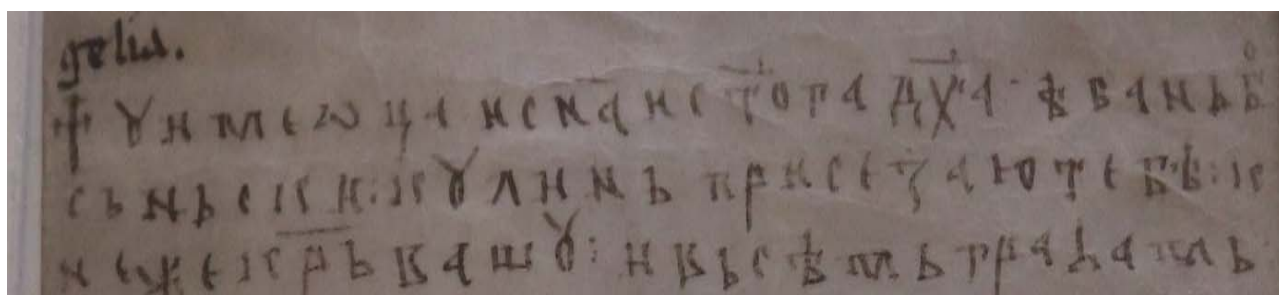 gelus.
† Ꙋ име ѡца и сн҃а и ст҃ога дх҃а · ѣ бань бⷪ
сьньски : кꙋлинь присезаю тебѣ : к
неже кр҃ьвашꙋ : и вьсѣмь граꙉамь